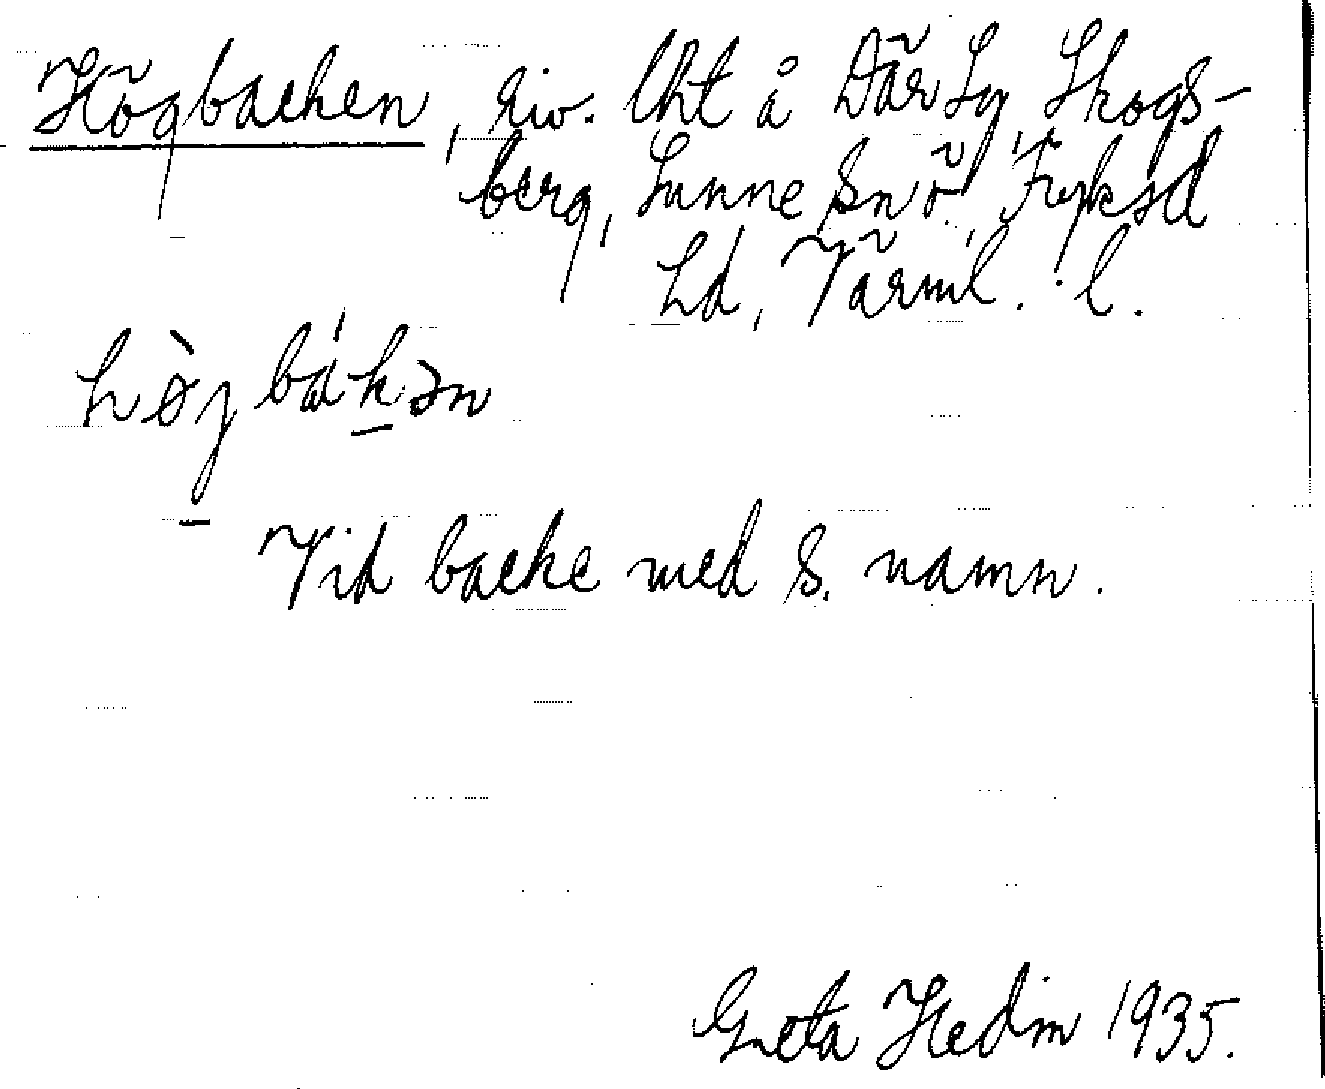 Högbacken, riv. lht å Där Sg, Skogs-
berg, Sunne sn ö, Fryksd
hd, Värml. l.
hø̀gbákən
Vid backe med s. namn.
Greta Hedin 1935.